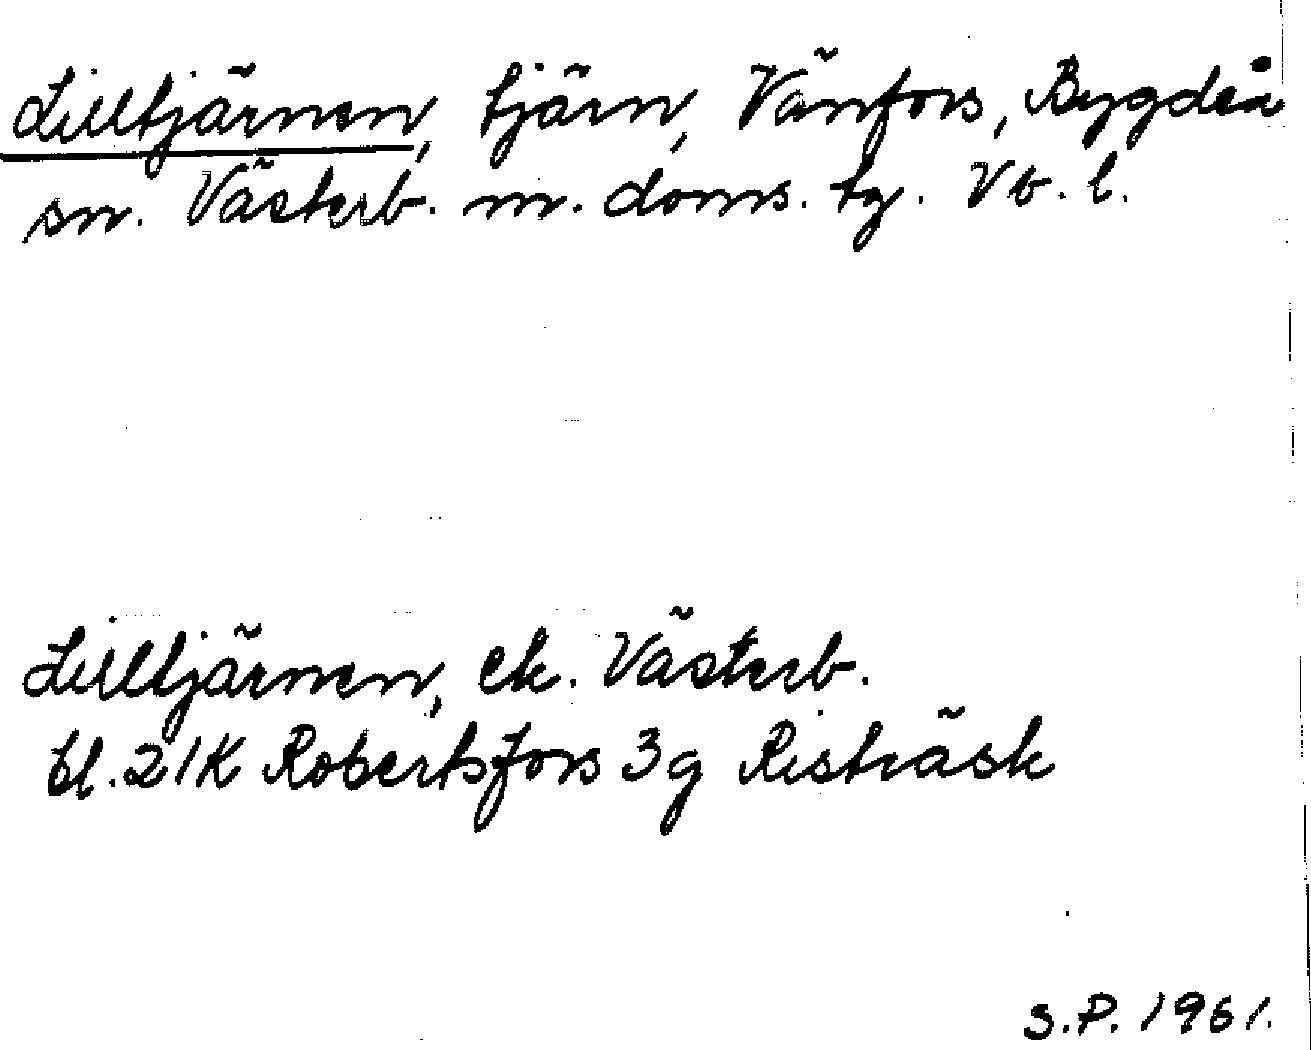 Lilltjärnen, tjärn, Vänfors, Bygdeå
sn. Västerb. m. doms. tg. Vb. l.
Lilltjärnen, ek. Västerb.
bl. 21K Robertsfors 3g Risträsk
S.P. 1961.